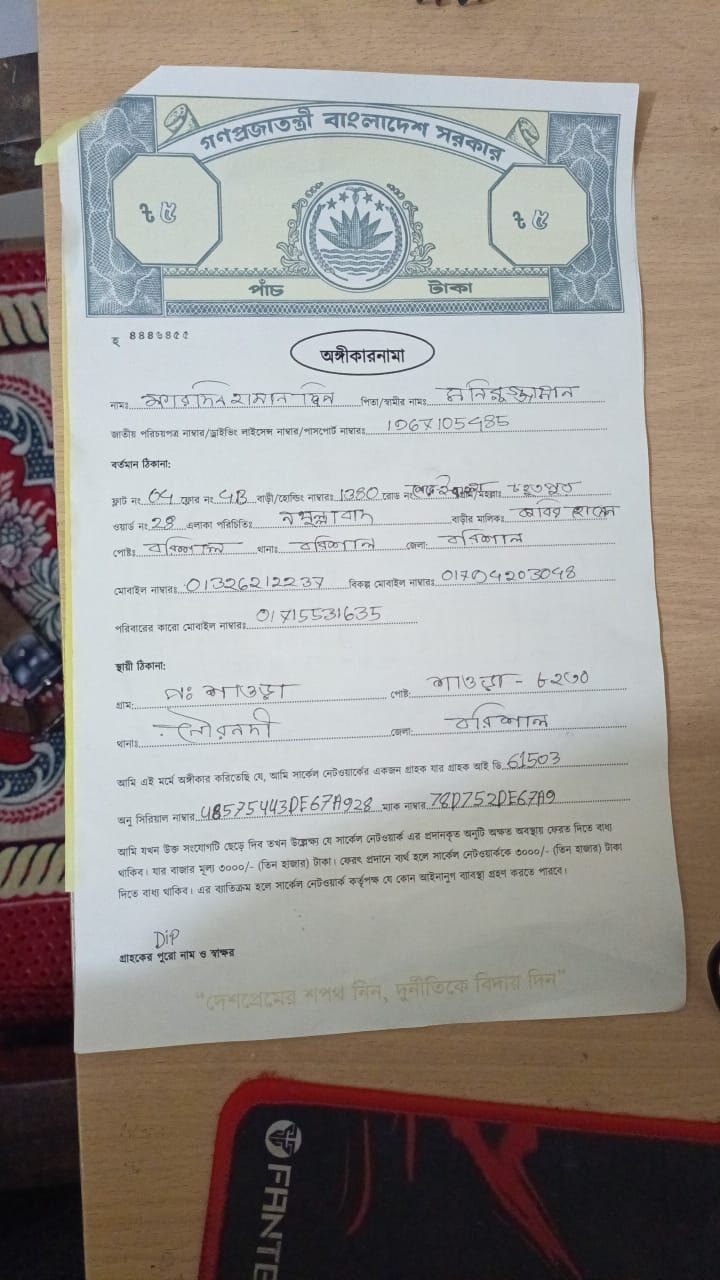 গণপ্রজাতন্ত্রী বাংলাদেশ সরকার
৳ ৫ ৳ ৫
পাঁচ টাকা
হ ৪৪৪৬৪৫৫
অঙ্গীকারনামা
নামঃ দ্বিপ পিতা/স্বামীর নামঃ মনিরুজ্জামান
জাতীয় পরিচয়পত্র নাম্বার/ড্রাইভিং লাইসেন্স নাম্বার/পাসপোর্ট নাম্বারঃ 1967105485
বর্তমান ঠিকানা:
ফ্লাট নং 04 ফ্লোর নং 4B বাড়ী/হোল্ডিং নাম্বারঃ 1380 রোড নং
ওয়ার্ড নং 28 এলাকা পরিচিতিঃ বাড়ীর মালিকঃ
পোষ্টঃ বরিশাল থানাঃ বরিশাল জেলা: বরিশাল
মোবাইল নাম্বারঃ 01326212237 বিকল্প মোবাইল নাম্বারঃ 01704203048
পরিবারের কারো মোবাইল নাম্বারঃ 01715531635
স্থায়ী ঠিকানা:
গ্রাম: পঃ শাওড়া পোষ্ট: শাওড়া - ৮২৩০
থানাঃ গৌরনদী জেলা: বরিশাল
আমি এই মর্মে অঙ্গীকার করিতেছি যে, আমি সার্কেল নেটওয়ার্কের একজন গ্রাহক যার গ্রাহক আই ডি 61503
অনু সিরিয়াল নাম্বার 48575443DE67A928 ম্যাক নাম্বার 78D752DE67A9
আমি যখন উক্ত সংযোগটি ছেড়ে দিব তখন উল্লেক্ষ্য যে সার্কেল নেটওয়ার্ক এর প্রদানকৃত অনুটি অক্ষত অবস্থায় ফেরত দিতে বাধ্য
থাকিব। যার বাজার মূল্য ৩০০০/- (তিন হাজার) টাকা। ফেরৎ প্রদানে ব্যর্থ হলে সার্কেল নেটওয়ার্ককে ৩০০০/- (তিন হাজার) টাকা
দিতে বাধ্য থাকিব। এর ব্যতিক্রম হলে সার্কেল নেটওয়ার্ক কর্তৃপক্ষ যে কোন আইনানুগ ব্যবস্থা গ্রহণ করতে পারবে।
DIP
গ্রাহকের পুরো নাম ও স্বাক্ষর
"দেশপ্রেমের শপথ নিন, দুর্নীতিকে বিদায় দিন"
FANTE